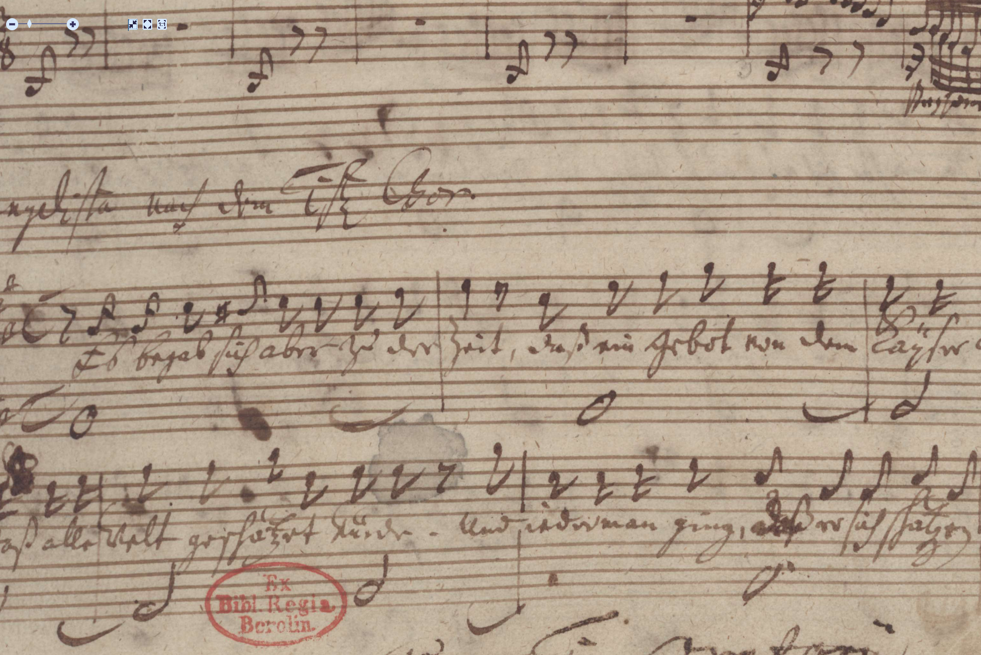 nach dem Chor
Es begab sich aber zu der Zeit, daß ein Gebot von dem Kayser
alle Welt geschätzet würde. Und iederman ging, er sich schätzen
Ex
Bibl. Regia
Berolin.